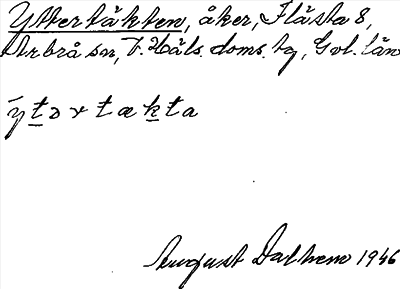 Yttertäkten, åker, Flästa 8,
Arbrå sn, V. Häls. doms. tg, Gvl. län
ȳtərtækta
August Dalhem 1946